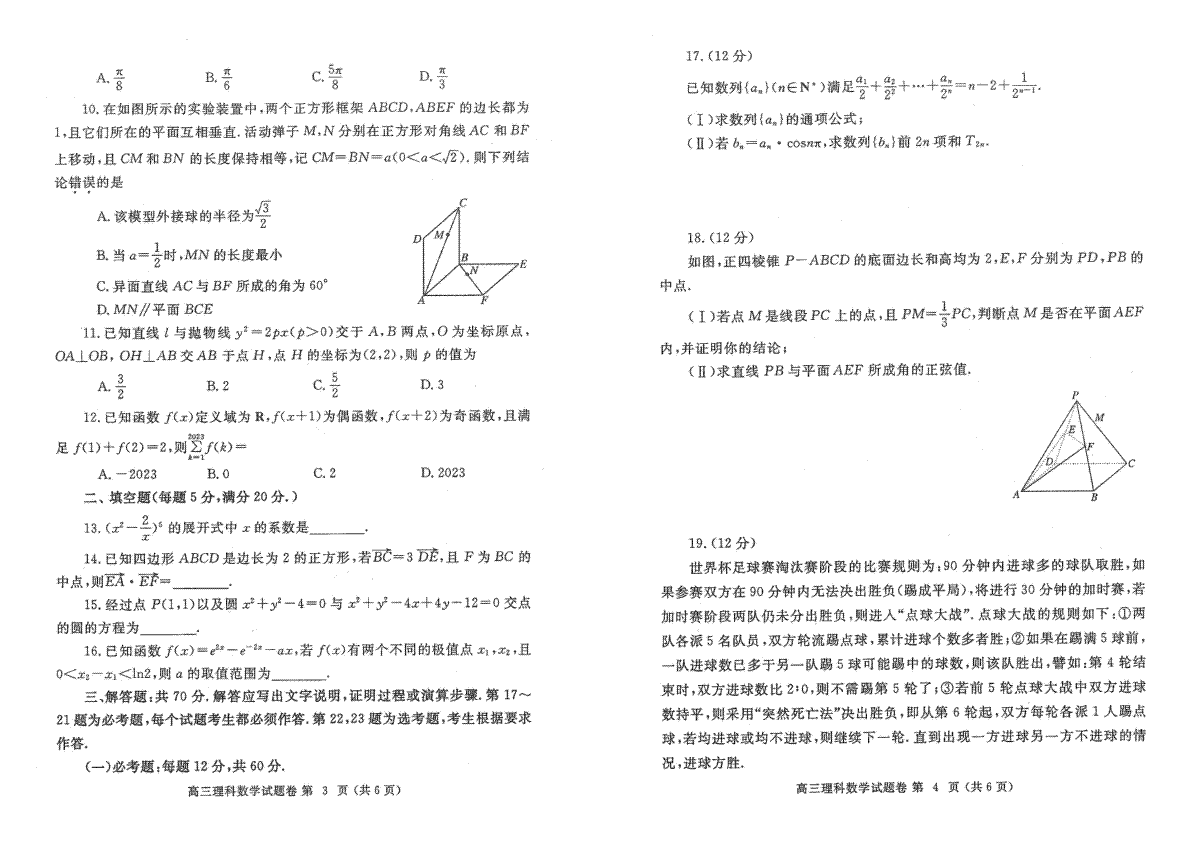 A. π/8 B. π/6 C. 5π/8 D. π/3
10. 在如图所示的实验装置中,两个正方形框架 ABCD,ABEF 的边长都为
1,且它们所在的平面互相垂直. 活动弹子 M,N 分别在正方形对角线 AC 和 BF
上移动,且 CM 和 BN 的长度保持相等,记 CM=BN=a(0<a<√2). 则下列结
论错误的是
A. 该模型外接球的半径为 √3/2
B. 当 a=1/2 时,MN 的长度最小
C. 异面直线 AC 与 BF 所成的角为 60°
D. MN∥平面 BCE
C
D
M
B
N
E
A
F
11. 已知直线 l 与抛物线 y²=2px(p>0)交于 A,B 两点,O 为坐标原点,
OA⊥OB, OH⊥AB 交 AB 于点 H,点 H 的坐标为(2,2),则 p 的值为
A. 3/2 B. 2 C. 5/2 D. 3
12. 已知函数 f(x)定义域为 R,f(x+1)为偶函数,f(x+2)为奇函数,且满
足 f(1)+f(2)=2,则 ∑_{k=1}^{2023} f(k)=
A. -2023 B. 0 C. 2 D. 2023
二、填空题(每题 5 分,满分 20 分.)
13. (x²-2/x)⁵ 的展开式中 x 的系数是________.
14. 已知四边形 ABCD 是边长为 2 的正方形,若 BC→=3 DE→,且 F 为 BC 的
中点,则 EA→·EF→=________.
15. 经过点 P(1,1)以及圆 x²+y²-4=0 与 x²+y²-4x+4y-12=0 交点
的圆的方程为________.
16. 已知函数 f(x)=e²ˣ-e⁻²ˣ-ax,若 f(x)有两个不同的极值点 x₁,x₂,且
0<x₂-x₁<ln2,则 a 的取值范围为________.
三、解答题:共 70 分. 解答应写出文字说明,证明过程或演算步骤. 第 17～
21 题为必考题,每个试题考生都必须作答. 第 22,23 题为选考题,考生根据要求
作答.
(一)必考题:每题 12 分,共 60 分.
高三理科数学试题卷 第 3 页 (共 6 页)
17. (12 分)
已知数列{aₙ}(n∈N*)满足 a₁/2+a₂/2²+…+aₙ/2ⁿ=n-2+1/2ⁿ⁻¹.
(Ⅰ)求数列{aₙ}的通项公式;
(Ⅱ)若 bₙ=aₙ·cosnπ,求数列{bₙ}前 2n 项和 T₂ₙ.
18. (12 分)
如图,正四棱锥 P-ABCD 的底面边长和高均为 2,E,F 分别为 PD,PB 的
中点.
(Ⅰ)若点 M 是线段 PC 上的点,且 PM=1/3PC,判断点 M 是否在平面 AEF
内,并证明你的结论;
(Ⅱ)求直线 PB 与平面 AEF 所成角的正弦值.
P
M
E
F
D
C
A
B
19. (12 分)
世界杯足球赛淘汰赛阶段的比赛规则为:90 分钟内进球多的球队取胜,如
果参赛双方在 90 分钟内无法决出胜负(踢成平局),将进行 30 分钟的加时赛,若
加时赛阶段两队仍未分出胜负,则进入“点球大战”. 点球大战的规则如下:①两
队各派 5 名队员,双方轮流踢点球,累计进球个数多者胜;②如果在踢满 5 球前,
一队进球数已多于另一队踢 5 球可能踢中的球数,则该队胜出,譬如:第 4 轮结
束时,双方进球数比 2:0,则不需踢第 5 轮了;③若前 5 轮点球大战中双方进球
数持平,则采用“突然死亡法”决出胜负,即从第 6 轮起,双方每轮各派 1 人踢点
球,若均进球或均不进球,则继续下一轮. 直到出现一方进球另一方不进球的情
况,进球方胜.
高三理科数学试题卷 第 4 页 (共 6 页)